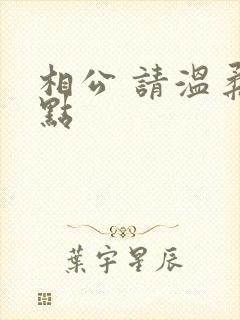 相公 請溫柔
點
葉宇星辰